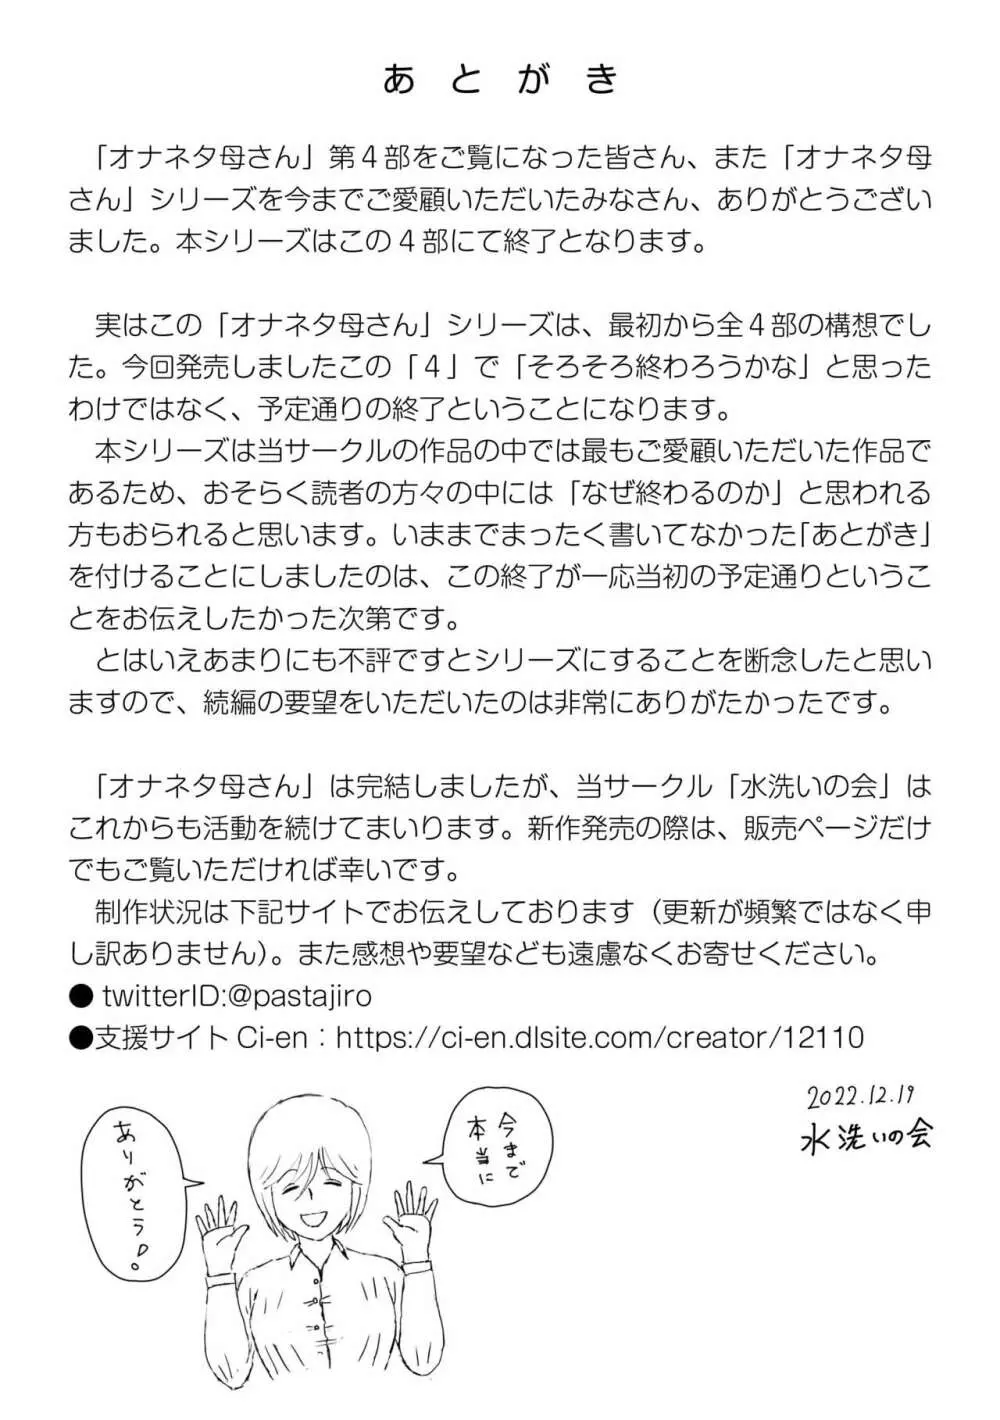 あとがき
「オナネタ母さん」第４部をご覧になった皆さん、また「オナネタ母
さん」シリーズを今までご愛顧いただいたみなさん、ありがとうござい
ました。本シリーズはこの４部にて終了となります。
実はこの「オナネタ母さん」シリーズは、最初から全４部の構想でし
た。今回発売しましたこの「４」で「そろそろ終わろうかな」と思った
わけではなく、予定通りの終了ということになります。
本シリーズは当サークルの作品の中では最もご愛顧いただいた作品で
あるため、おそらく読者の方々の中には「なぜ終わるのか」と思われる
方もおられると思います。いままでまったく書いてなかった「あとがき」
を付けることにしましたのは、この終了が一応当初の予定通りというこ
とをお伝えしたかった次第です。
とはいえあまりにも不評ですとシリーズにすることを断念したと思い
ますので、続編の要望をいただいたのは非常にありがたかったです。
「オナネタ母さん」は完結しましたが、当サークル「水洗いの会」は
これからも活動を続けてまいります。新作発売の際は、販売ページだけ
でもご覧いただければ幸いです。
制作状況は下記サイトでお伝えしております（更新が頻繁ではなく申
し訳ありません）。また感想や要望なども遠慮なくお寄せください。
● twitterID:@pastajiro
●支援サイト Ci-en：https://ci-en.dlsite.com/creator/12110
2022.12.19
水洗いの会
今まで
本当に
ありがとう!